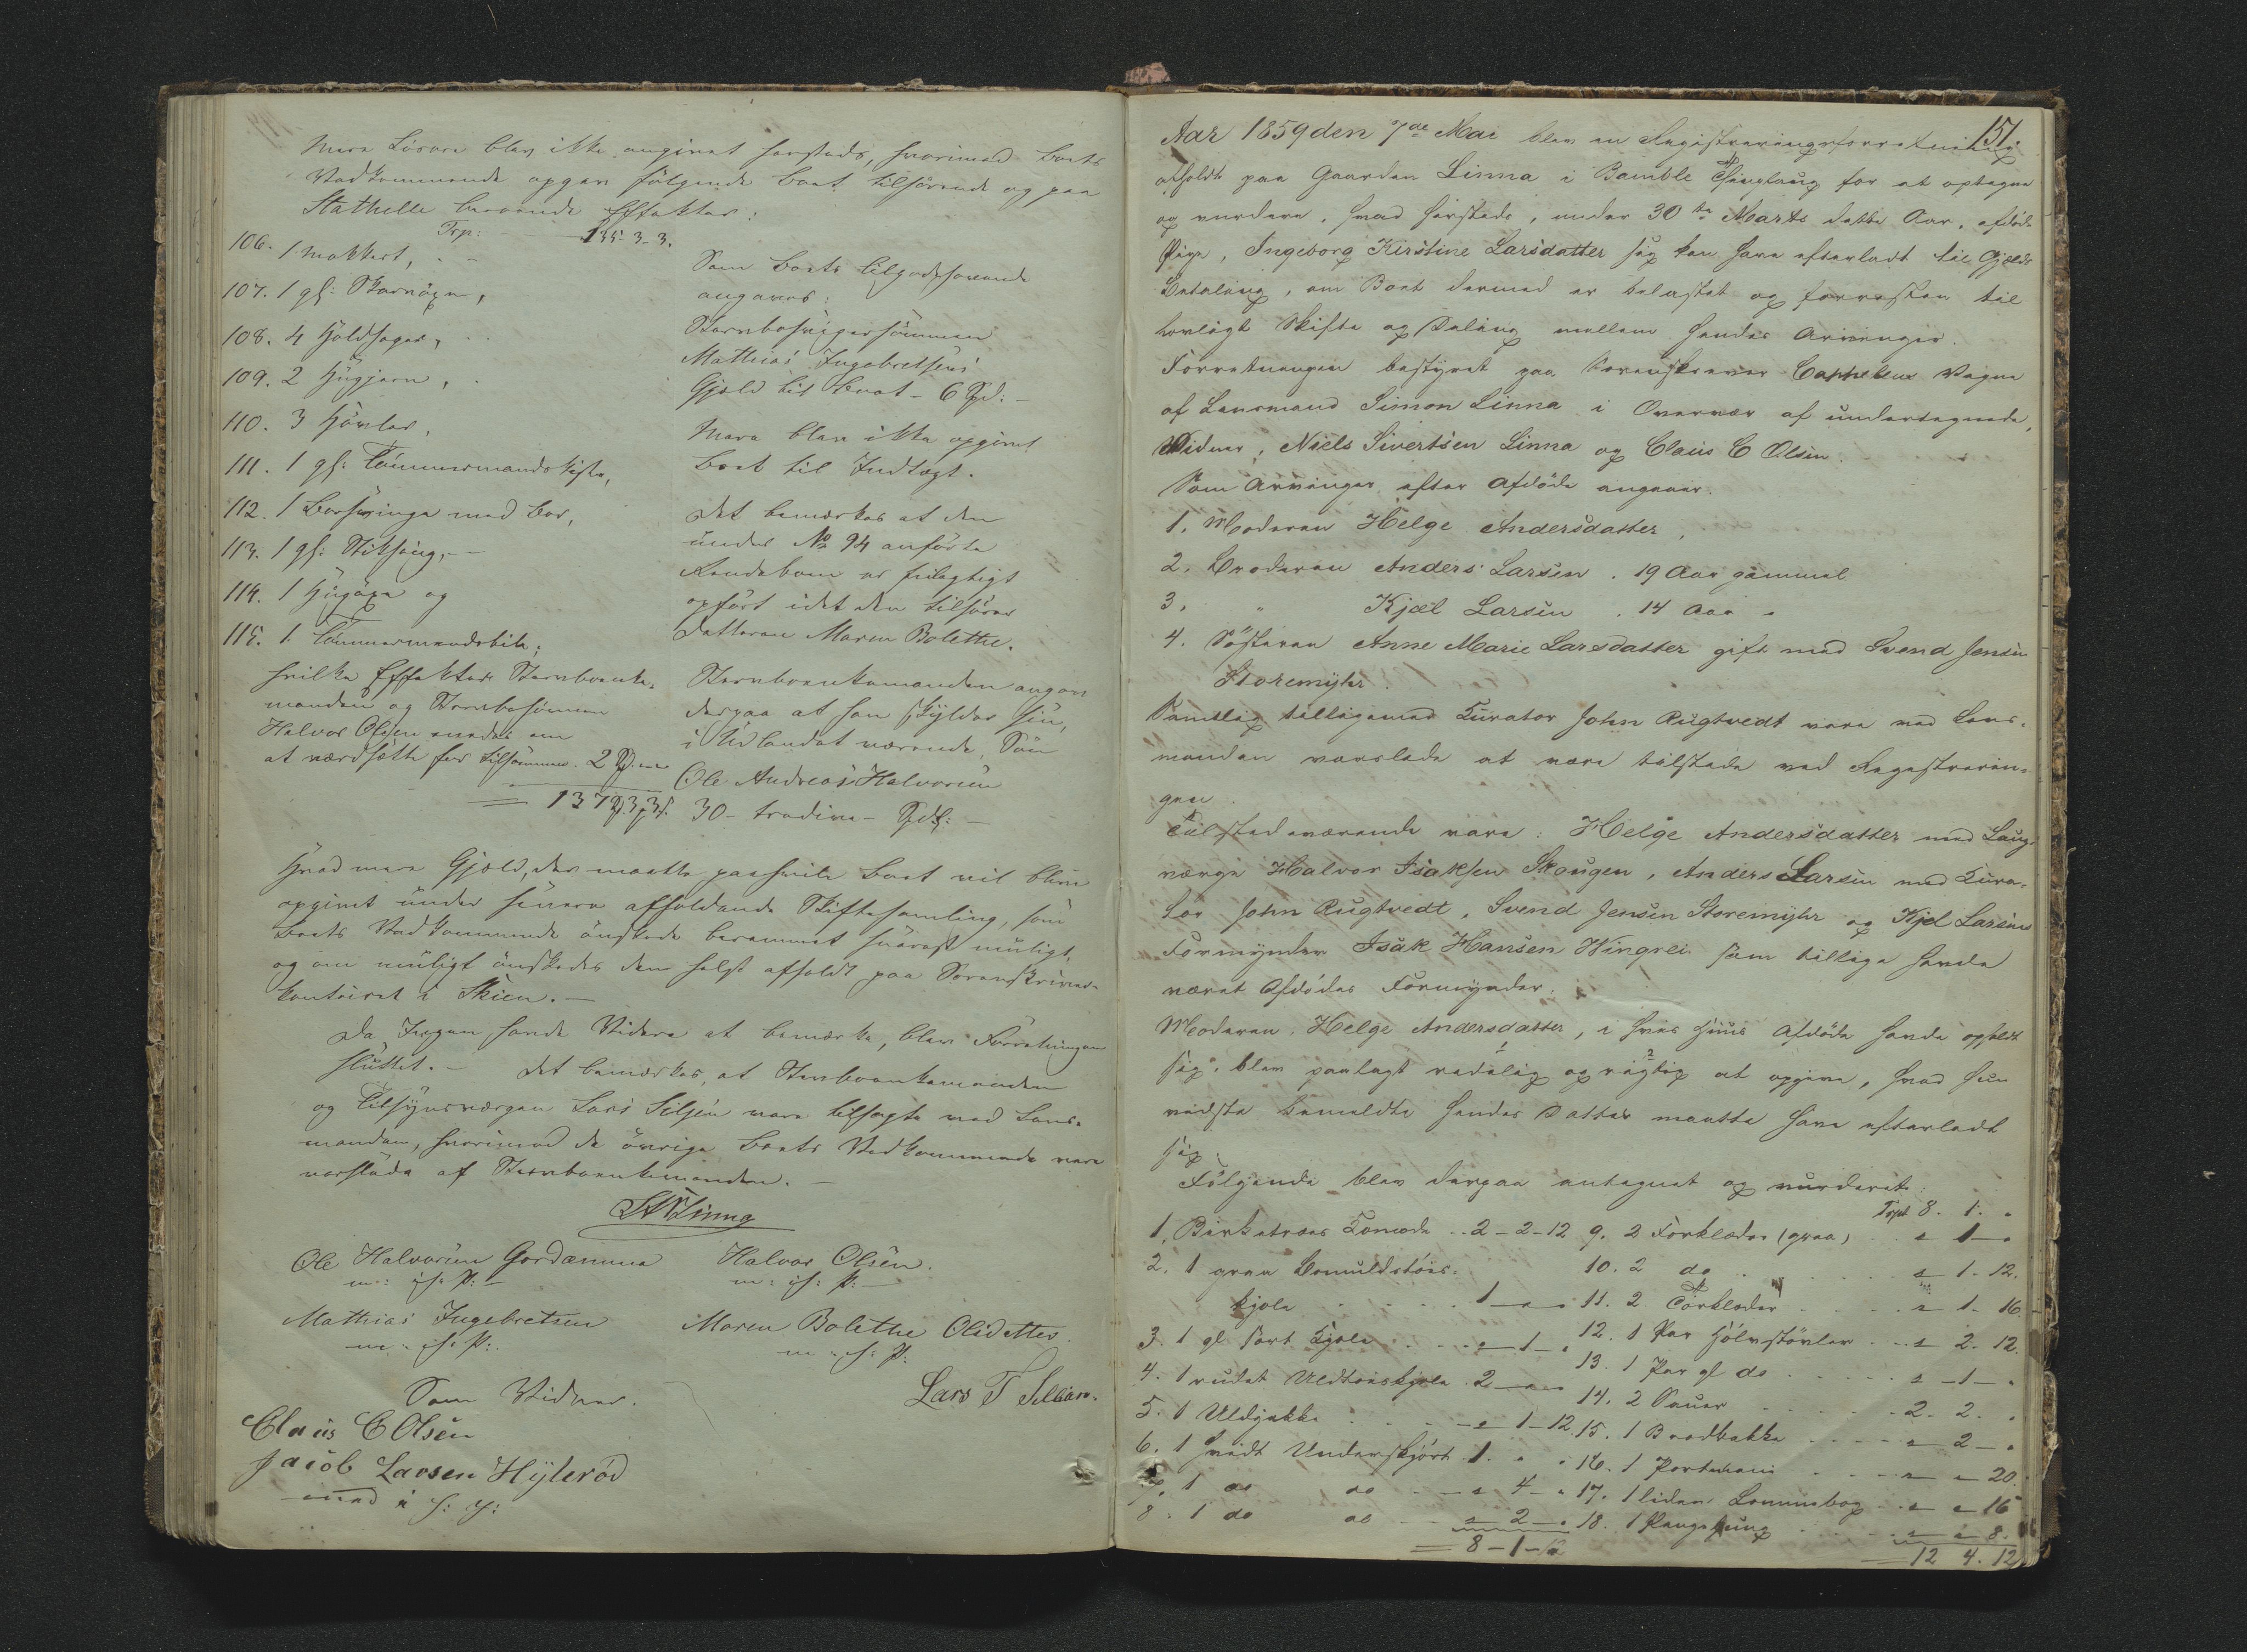 Mere Lösöre blev ikke angivet hersteds, hvorimod Boets
Vedkommende opgav fölgende Boet tilhörende og paa
Stathelle beroende Effekter:
Trp: 135-3-3.
106. 1 Mokkert,
107. 1 gl: Skarøxe,
108. 4 Holdhager,
109. 2 Hugjern,
110. 3 Hövler,
111. 1 gl: Tömmermandskiste,
112. 1 Borsvinge med Bor,
113. 1 gl: Stiksaug,
114. 1 Hugöxe og
115. 1 Tömmermandsbile,
hvilke Effekter Stervboenke-
manden og Stervbosönnen
Halvor Olsen enedes om
at værdsætte for tilsammen 2 Spd.
= 137 Spd. 3 3 s.
Som Boets tilgodehavende
angaves:
Stervbosvigersönnen
Mathias Ingebretsens
Gjæld til Boet - 6 Spd: -
Mere blev ikke opgivet
Boet til Indtægt.
Det bemærkes at den
under No 94 anförte
er feilagtigt
opfört idet den tilhörer
Datteren Maren Bolethe.
Stervboenkemanden angav
derpaa at han skylder sin,
i Udlandet værende, Sön
Ole Andreas Halvorsen
30 - tredive - Spdl: -
Hvad mere Gjæld, der maatte paahvile Boet vil blive
opgivet under senere afholdende Skiftesamling, som
Boets Vedkommende önskede berammet snarest muligt,
og om muligt önskedes den helst afholdt paa Sorenskriver-
kontoiret i Skien. -
Da Ingen havde Videre at bemærke, blev Forretningen
sluttet. - Det bemærkes, at Stervboenkemanden
og Tilsynsværgen Lars Siljan vare tilsagte ved Lens-
manden, hvorimod de övrige Boets Vedkommende vare
varslede af Stervboenkemanden. -
S Linna
Ole Halvorsen Gordamma Halvor Olsen.
m: i h: P: - m: i h: P: -
Mathias Ingebretsen Maren Bolethe Olsdatter.
m: i h: P: m: i h: P:
Som Vidner. Lars T Silliam.
Claus C Olsen
Jacob Larsen Hylleröd
med i h: P:
151.
Aar 1859 den 7de Mai blev en Registreringsforretning
afholdt paa Gaarden Linna i Bamble Thinglaug for at optegne
og vurdere, hvad hersteds, under 30te Marts dette Aar, afdöde
Pige, Ingeborg Kirstine Larsdatter sig kan have efterladt til Gjælds
Betaling, om Boet dermed er belastet og forresten til
lovligt Skifte og Deling mellem hendes Arvinger.
Forretningen bestyret paa Sorenskriver Cappelens Vegne
af Lensmand Simon Linna i Overvær af undertegnede,
Vidner, Niels Sivertsen Linna og Claus C Olsen.
Som Arvinger efter Afdöde angaves.
1. Moderen Helge Andersdatter,
2. Broderen Anders Larsen. 19 Aar gammel
3. " Kjæl Larsen. 14 Aar "
4. Sösteren Anne Marie Larsdatter gift med Svend Jensen
Storemyhr.
Samtlig tilligemed Curator John Rugtvedt vare ved Lens-
manden varslede at være tilstede ved Registrerin-
gen.
Tilstedeværende vare: Helge Andersdatter med Laug-
værge Halvor Isaksen Skougen, Anders Larsen med Cura-
tor John Rugtvedt, Svend Jensen Storemyhr og Kjel Larsens
Formynder Isak Hansen Wingrei som tillige havde
været Afdödes Formynder.
Moderen, Helge Andersdatter, i hvis Huus Afdöde havde opholdt
sig, blev paalagt redelig og rigtig at opgive, hvad hun
vidste bemeldte hendes Datter maatte have efterladt
sig.
Fölgende blev derpaa antegnet og vurderet:
1. Birketræes Comode .. 2-2-12
2. 1 graa Bomuldstöis-
kjole . . . . 1 - " - "
3. 1 gl sort Kjole . . . " - 1 - "
4. 1 rudet Uldtöiskjole 2 - " - "
5. 1 Uldjakke . . . " - 1 - 12.
6. 1 hvidt Underskjört 1. " "
7. 1 do do - " 4 - "
8. 1 do do - " 2 - "
= 8-1-12
Trpt 8. 1. "
9. 2 Forklæder (graa) . . " 1 - "
10. 2 do . . . . " 1. 12.
11. 2 Törklæder . . . . " 1. 16.
12. 1 Par Halvstövler . . . " 2. 12.
13. 1 Par gl do . . . . " - 1 - "
14. 2 Sauer . . . . 2. 2. "
15. 1 Brodbakke . . . " 2 - "
16. 1 Portekani . . . " - " 20.
17. 1 liden Lommebog . . " " 16
18. 1 Pengepung . . . " " 8.
= 12 4. 12